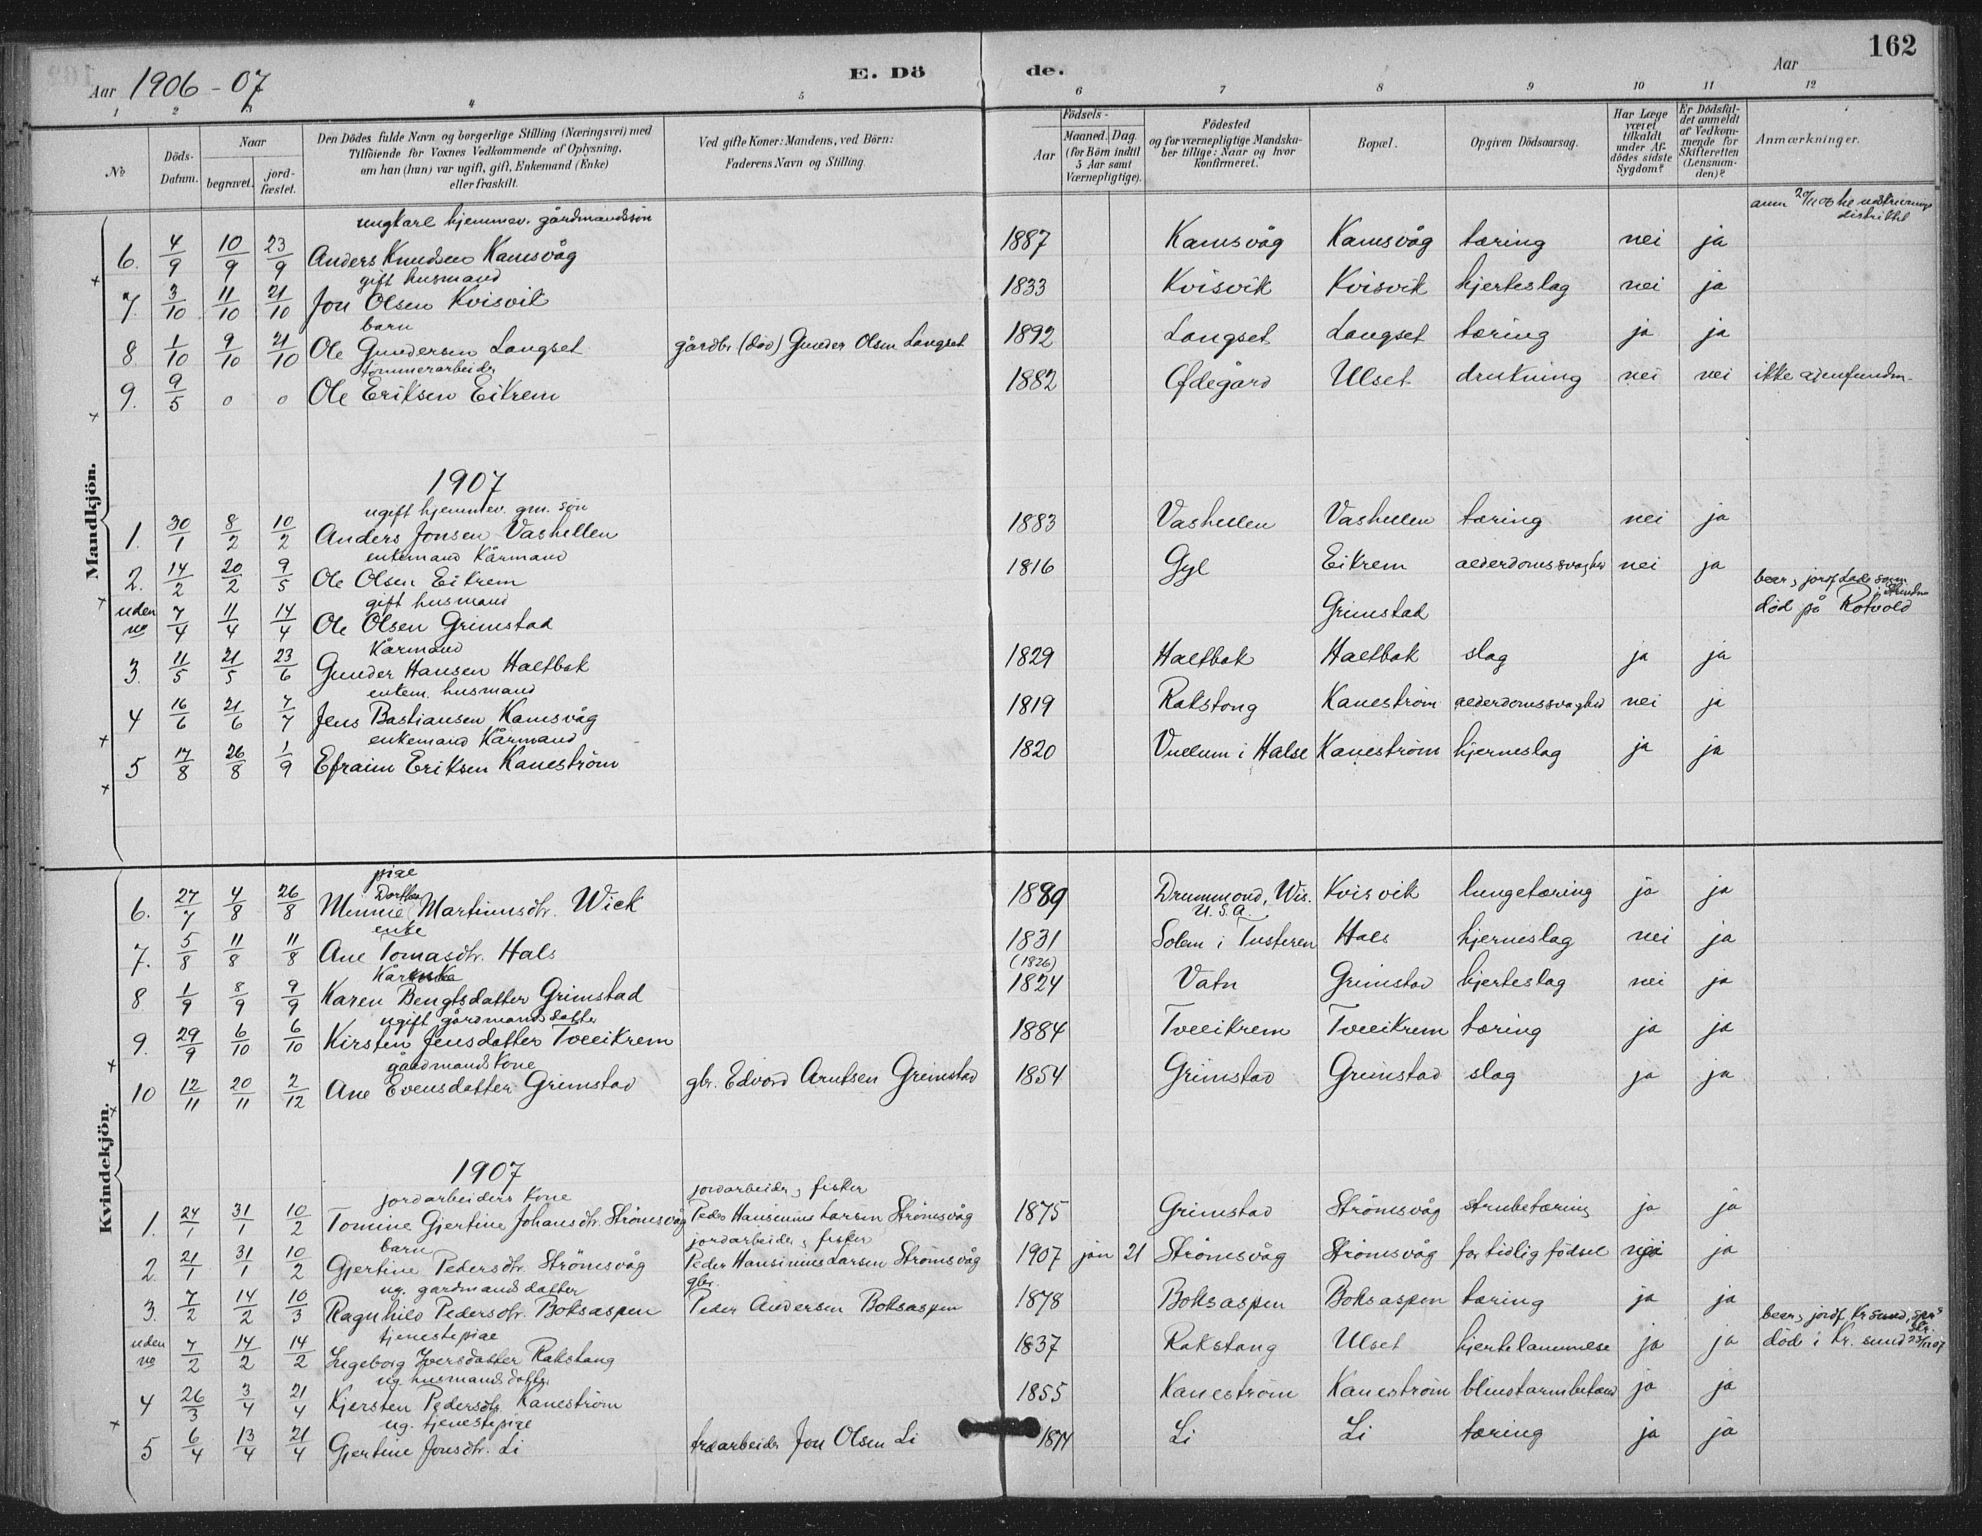 162
Aar 1906-07
E. Döde.
Aar
1 2 3 4 5 6 7 8 9 10 11 12
No
Döds-Datum.
Naar
begravet.
jord-fæstet.
Den Dödes fulde Navn og borgerlige Stilling (Næringsvei) med
Tilföiende for Voxnes Vedkommende af Oplysning,
om han (hun) var ugift, gift, Enkemand (Enke)
eller fraskilt.
Ved gifte Koner: Mandens, ved Börn:
Faderens Navn og Stilling.
Födsels-
Aar
Maaned. Dag.
(for Börn indtil
5 Aar samt
Værnepligtige).
Födested
og for værnepligtige Mandska-
ber tillige: Naar og hvor
konfirmeret.
Bopæl.
Opgiven Dödsaarsag.
Har Læge
været
tilkaldt
under Af-
dödes sidste
Sygdom?
Er Dödsfal-
det anmeldt
af Vedkom-
mende for
Skifteretten
(Lensman-
den)?
Anmærkninger.
Mandkjön.
ungkarl hjemmev. gårdmandssön
6. 4/9 10/9 23/9 Anders Knudsen Kamsvåg 1887 Kamsvåg Kamsvåg tæring nei ja
gift husmand
7. 3/10 11/10 21/10 Jon Olsen Kvisvik 1833 Kvisvik Kvisvik hjerteslag nei ja
barn
8 1/10 9/10 21/10 Ole Gundersen Langset gårdbr. (död) Gunder Olsen Langset 1892 Langset Langset tæring ja ja
tömmerarbeider
9. 9/5 o o Ole Eriksen Eikrem 1882 Ödegård Ulset drukning nei nei ikke gjenfunden
1907
ugift hjemmev. gm. sön
1. 30/1 8/2 10/2 Anders Jonsen Vashellen 1883 Vashellen Vashellen tæring nei ja
enkemand kårmand
2. 14/2 20/2 9/5 Ole Olsen Eikrem 1816 Gyl Eikrem alderdomssvaghed nei ja
gift husmand
uden no 7/4 11/4 14/4 Ole Olsen Grimstad Grimstad död på Rotvold
Kårmand
3. 11/5 21/5 23/6 Gunder Hansen Haltbak 1829 Haltbak Haltbak slag ja ja
enkem. husmand
4 16/6 21/6 7/7 Jens Bastiansen Kamsvåg 1819 Rakstang Kaneström alderdomssvaghed nei ja
enkemand kårmand
5 17/8 26/8 1/9 Efraim Eriksen Kaneström 1820 Vullum i Halse Kaneström hjerneslag ja ja
Kvindekjön.
pige
Dorthea
6. 27/7 4/8 26/8 Minnie Martinusdtr. Wick 1889 Drummond, Wis. U.S.A. Kvisvik lungetæring ja ja
enke
7. 5/8 11/8 11/8 Ane Tomasdtr. Hals 1831 Solem i Tusteren Hals hjerneslag nei ja
(1826)
8 1/9 8/9 9/9 Karen Bengtsdatter Grimstad 1824 Vatn Grimstad hjerteslag nei ja
ugift gårdmandsdatter
9. 29/9 6/10 6/10 Kirsten Jensdatter Tveeikrem 1884 Tveeikrem Tveeikrem tæring ja ja
gårdmandskone
10 12/11 20/11 2/12 Ane Evensdatter Grimstad gbr. Edvard Arntsen Grimstad 1854 Grimstad Grimstad slag ja ja
1907
jordarbeiders kone jordarbeider, fisker
1. 24/1 31/1 10/2 Tomine Gjertine Johansdtr. Strömsvåg Peder Hansinius Larsen Strömsvåg 1875 Grimstad Strömsvåg strubetæring ja ja
barn jordarbeider, fisker
2. 21/1 31/1 10/2 Gjertine Pedersdtr. Strömsvåg Peder Hansinius Larsen Strömsvåg 1907 jan 21 Strömsvåg Strömsvåg for tidlig födsel nei ja
ug. gardmandsdatter gbr.
3. 7/2 14/2 10/3 Ragnhild Pedersdtr. Boksaspen Peder Andersen Boksaspen 1878 Boksaspen Boksaspen tæring ja ja
tjenestepige
uden no 7/2 14/2 14/2 Ingeborg Iversdatter Rakstang 1837 Rakstang Ulset hjertelammelse ja ja död i Kr. sund
ug. husmandsdatter
4 26/3 3/4 21/4 Kjersten Pedersdtr. Kaneström 1855 Kaneström Kaneström blindtarmbetænd ja ja
ug. tjenestepige
5 6/4 13/4 21/4 Gjertine Jonsdtr. Li Jon Olsen Li 1874 Li Li tæring ja ja